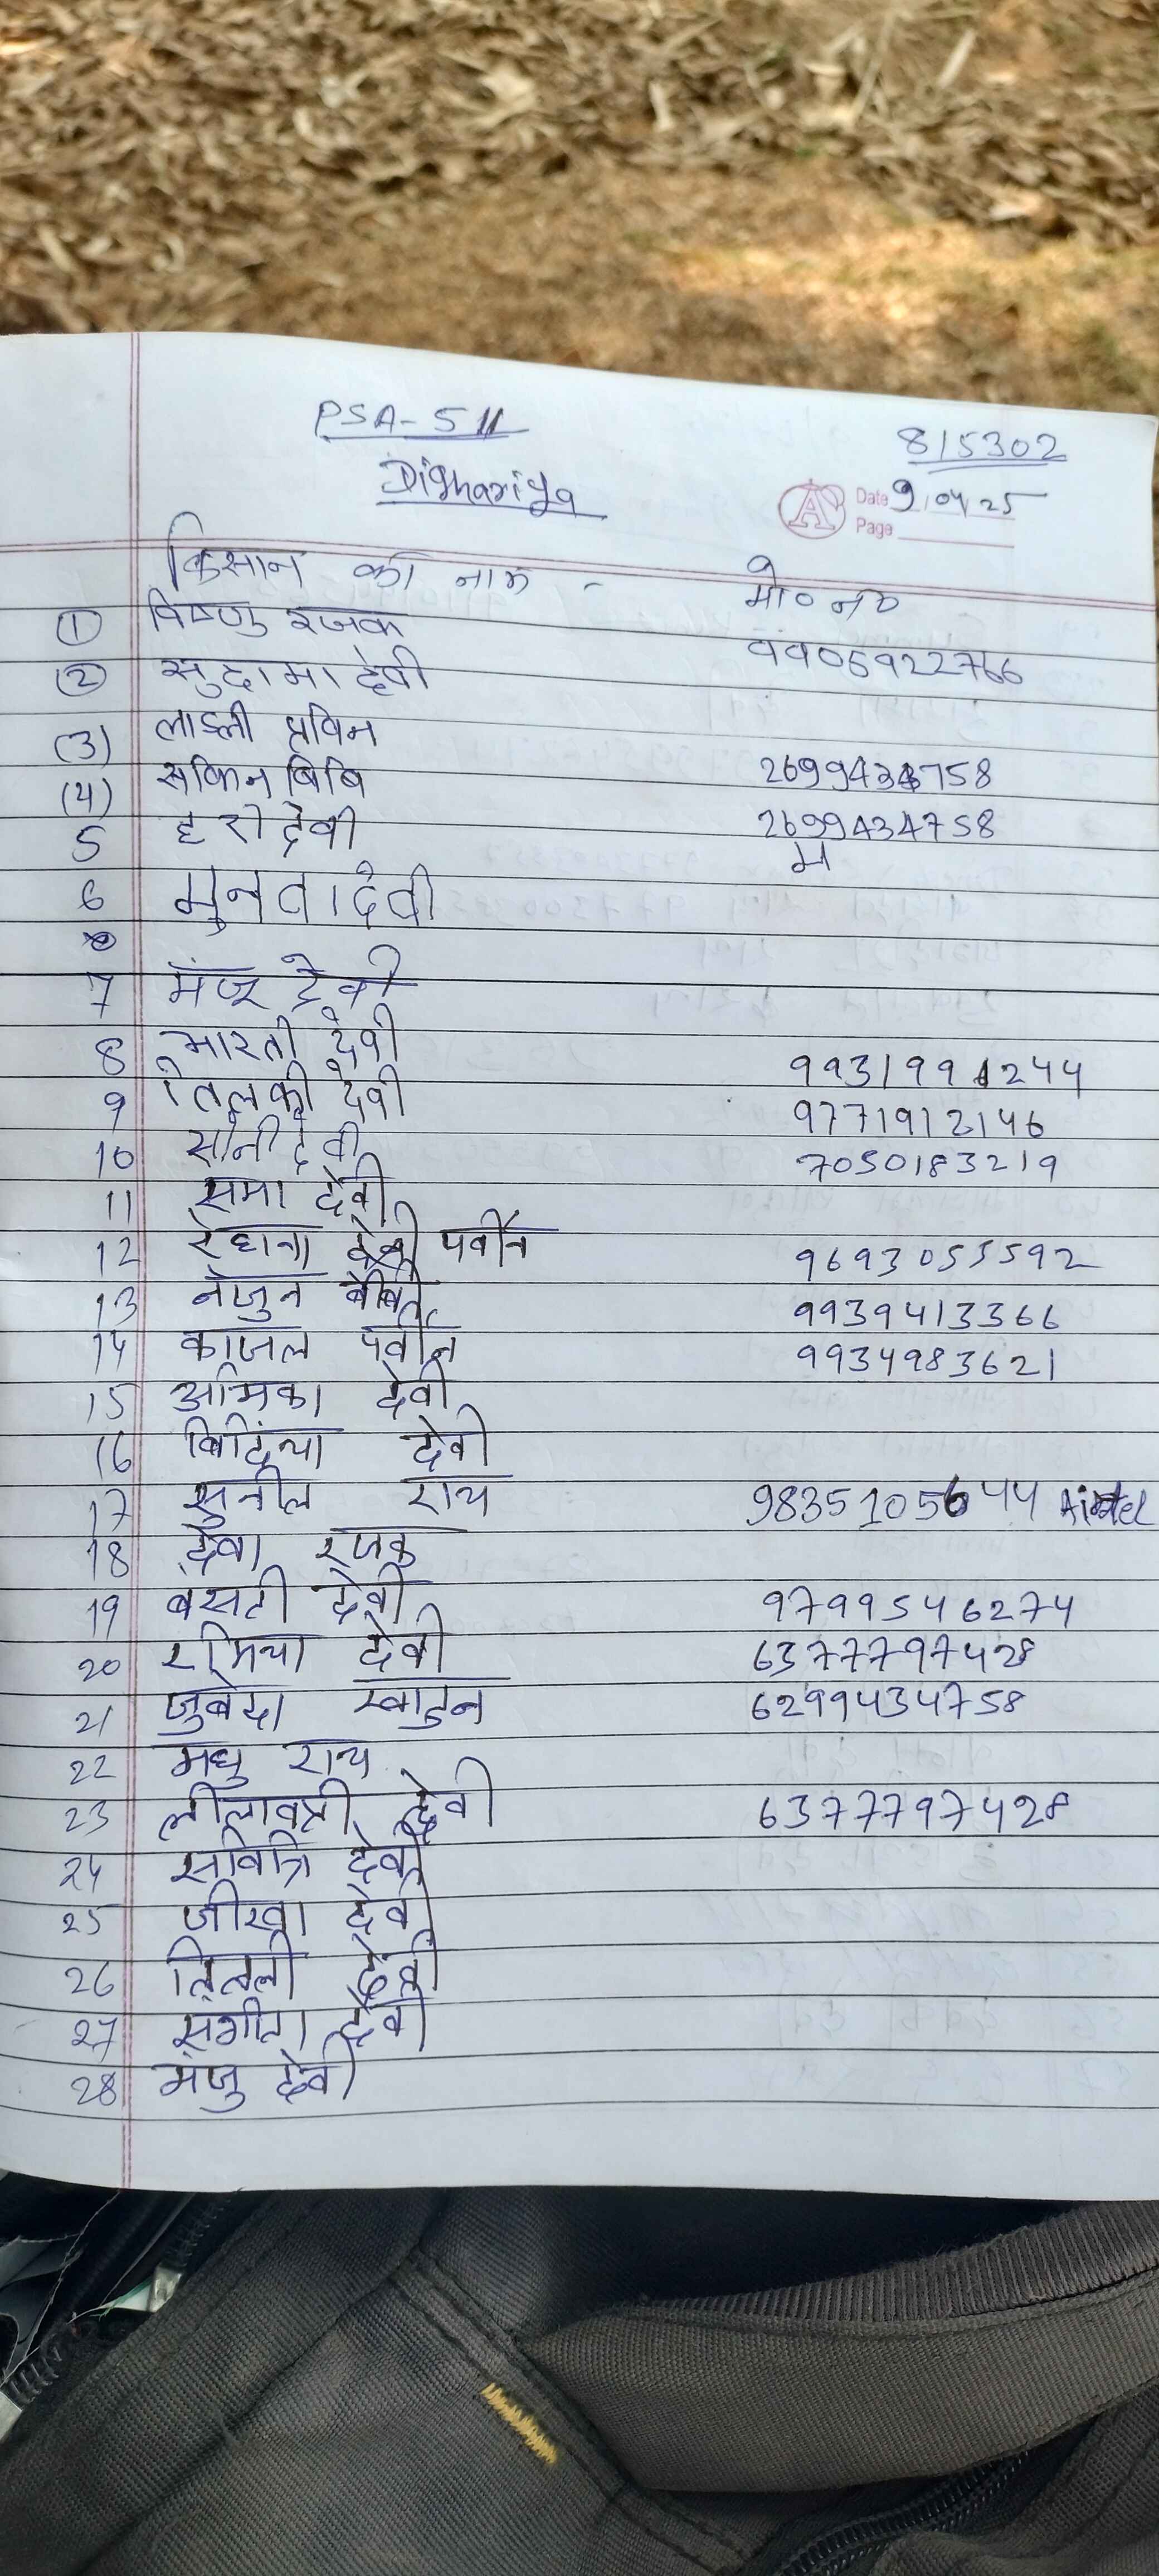 PSA-511
815302
Dighariya
Date 9/04/25
Page
किसान का नाम - मो० न०
① विष्णु रजक
② सुदामा देवी 9905922766
(3) लाडली प्रविन
(4) सकिन बिबि 2699434758
5 हरो देवी 2699434758
6 मुनवा देवी
7 मंजू देवी
8 भारती देवी 9931991244
9 तिलकी देवी 9771912146
10 सोनी देवी 7050183219
11 समा देवी
12 रेहाना पर्वीन 9693055592
13 नजुन बीबी 9939413366
14 काजल पर्वीन 9934983621
15 अमिका देवी
16 बिंदिया देवी
17 सुनील राय 9835105644 Airtel
18 देवा रजक
19 बसटी देवी 9799546274
20 रमिया देवी 6377797428
21 जुबेदा खातुन 6299434758
22 मधु राय
23 लीलावत्री देवी 6377797428
24 सवित्रि देवी
25 जीरवा देवी
26 तितली देवी
27 संगीता देवी
28 मंजु देवी